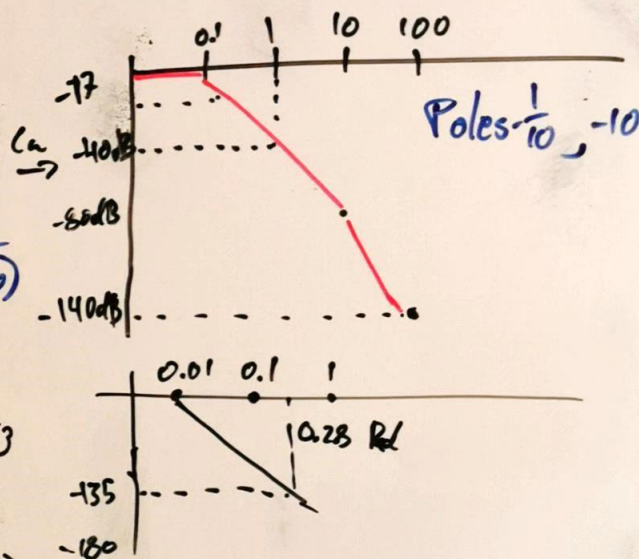 0.1 1 10 100
-17
Poles -1/10, -10
-40dB
-80dB
-140dB
0.01 0.1 1
0.28 Rd
-135
-180